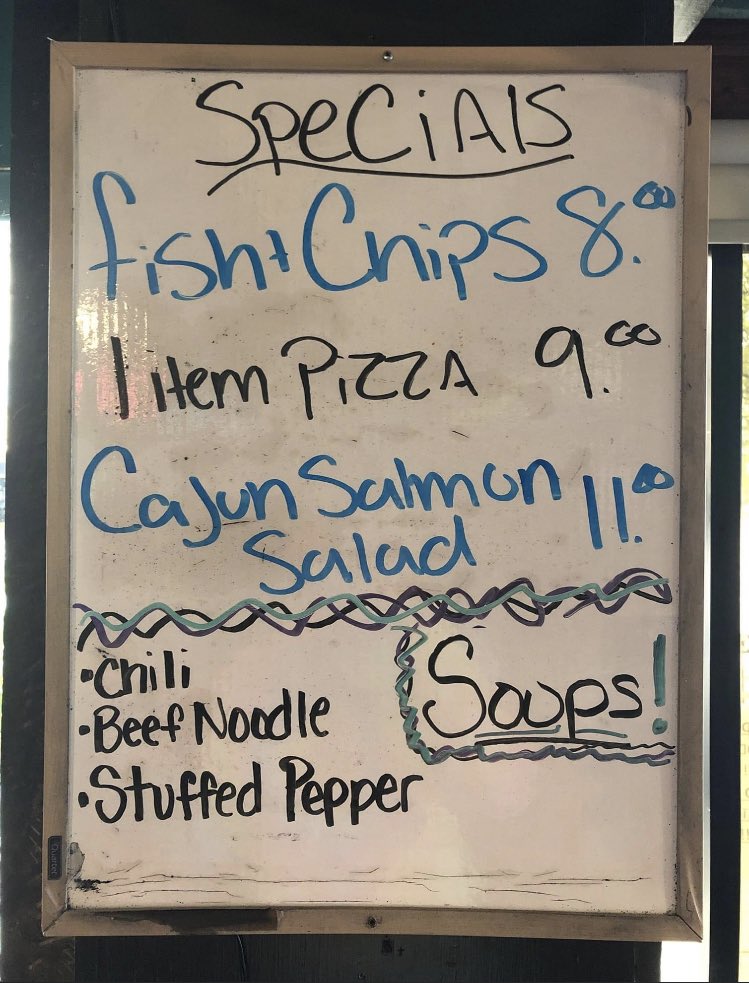 SpeCiAls
fish + Chips 8.00
1 item PiZZA 9.00
Cajun Salmon 11.00
Salad
Soups!
• Chili
• Beef Noodle
• Stuffed Pepper
Quartet